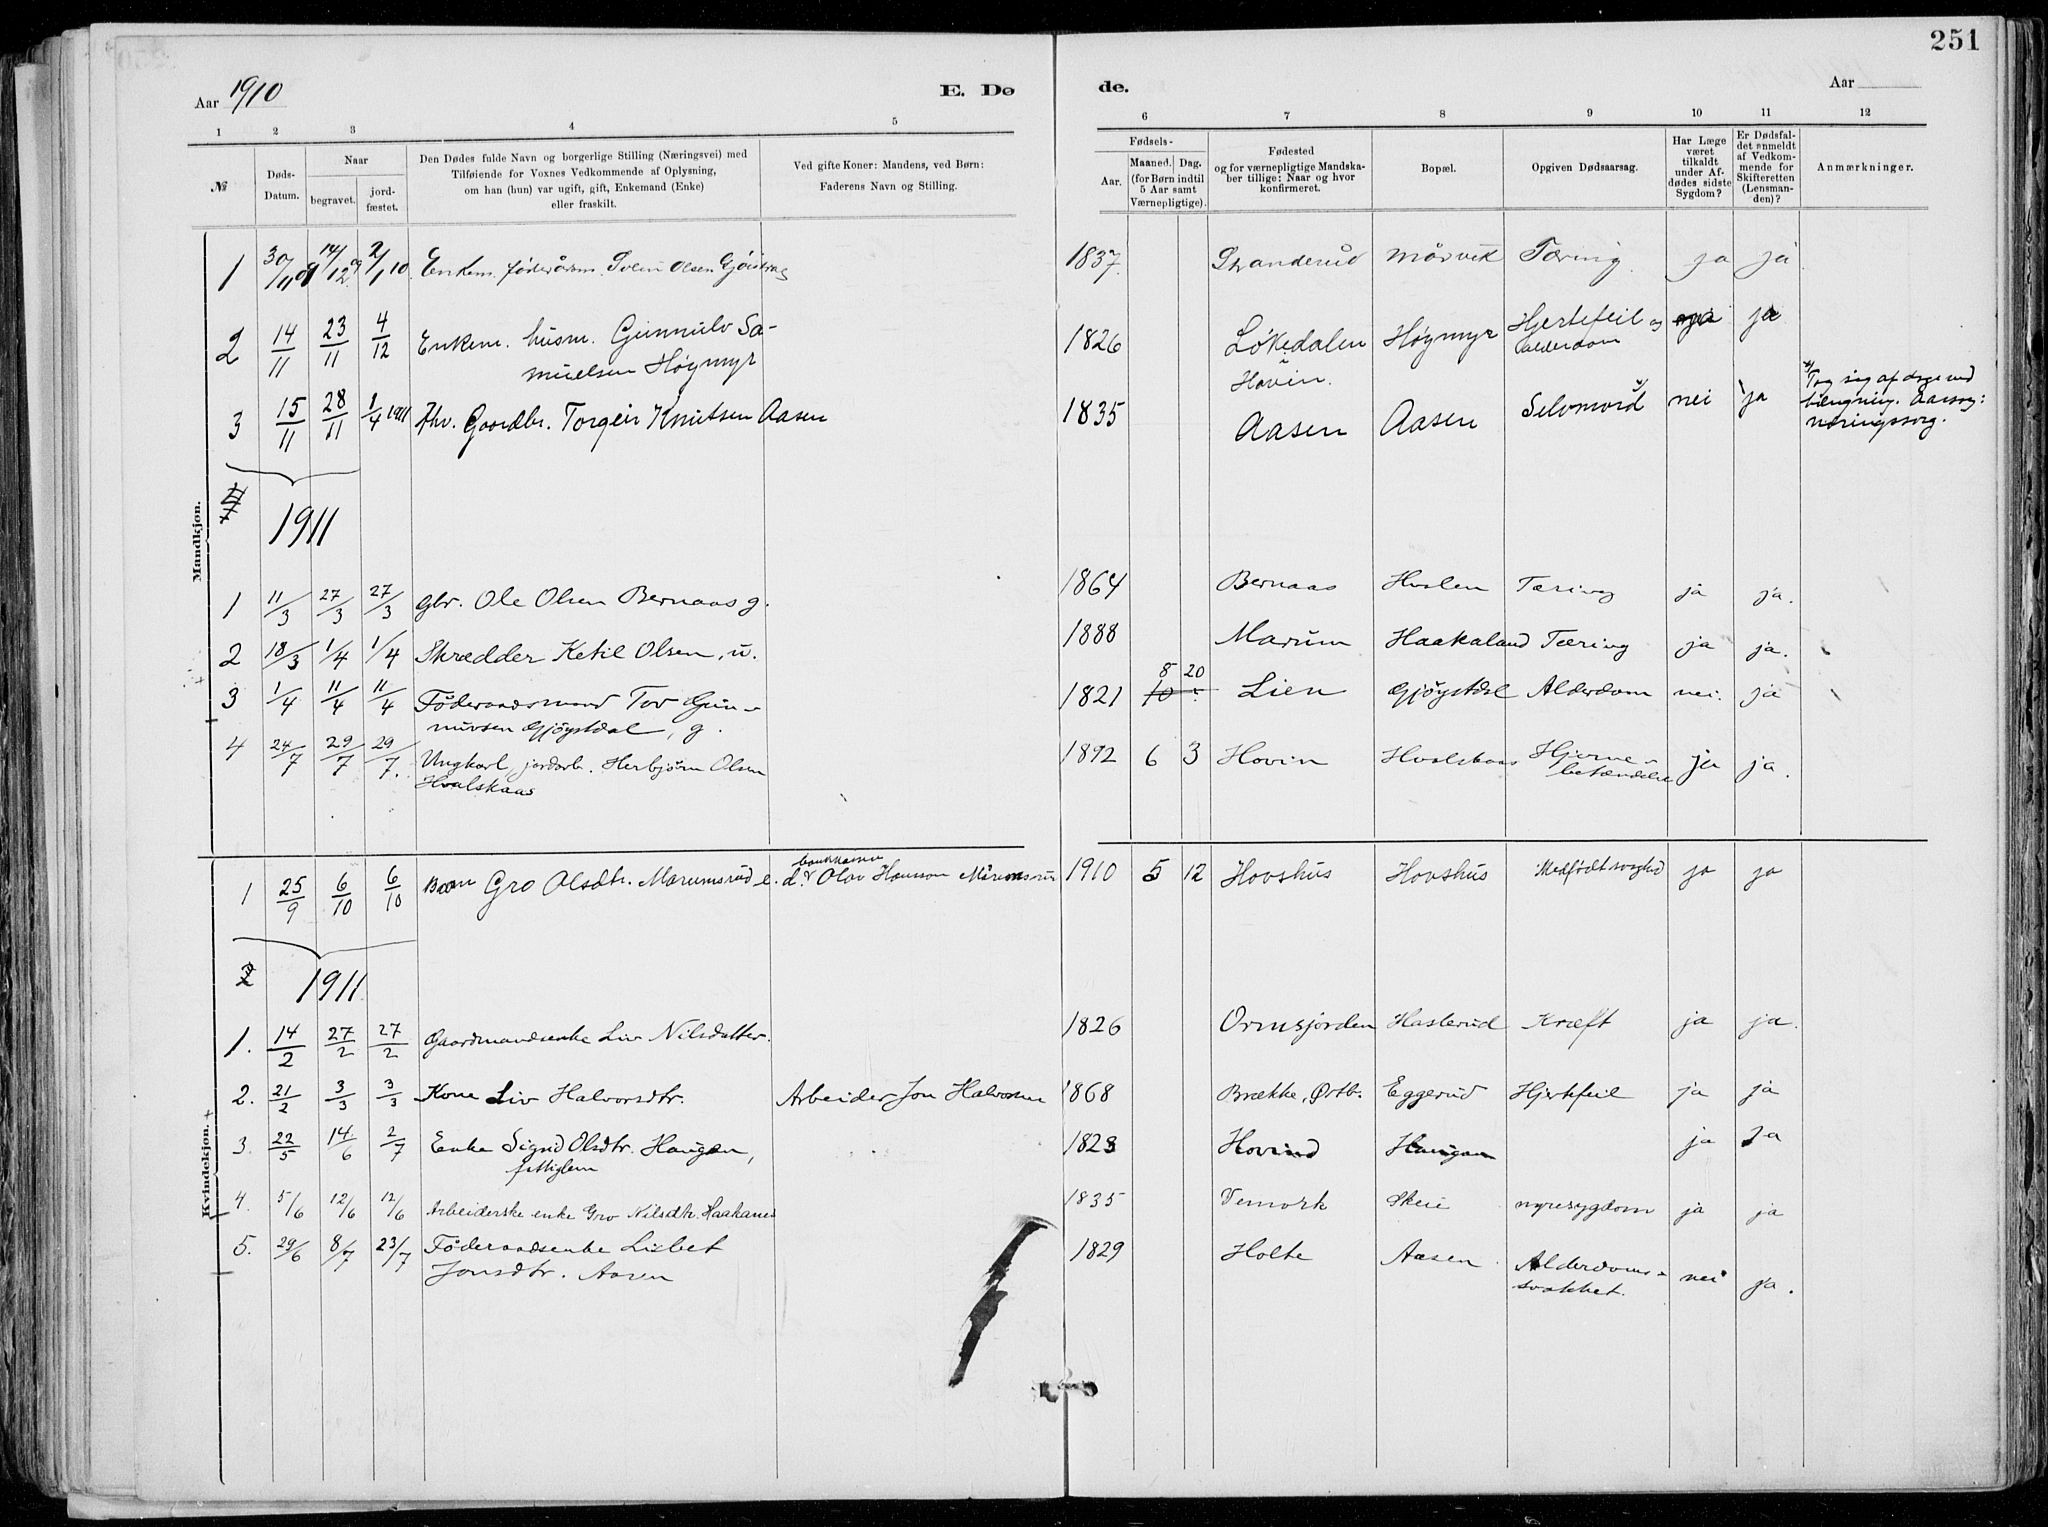 251
Aar 1910
E. Dø
de.
Aar
1 2 3 4 5
6 7 8 9 10 11 12
№
Døds-Datum.
Naar
begravet.
jordfæstet.
Den Dødes fulde Navn og borgerlige Stilling (Næringsvei) med
Tilføiende for Voxnes Vedkommende af Oplysning,
om han (hun) var ugift, gift, Enkemand (Enke)
eller fraskilt.
Ved gifte Koner: Mandens, ved Børn:
Faderens Navn og Stilling.
Fødsels-
Aar.
Maaned. Dag.
(for Børn indtil
5 Aar samt
Værnepligtige).
Fødested
og for værnepligtige Mandska-
ber tillige: Naar og hvor
konfirmeret.
Bopæl.
Opgiven Dødsaarsag.
Har Læge
været
tilkaldt
under Af-
dødes sidste
Sygdom?
Er Dødsfal-
det anmeldt
af Vedkom-
mende for
Skifteretten
(Lensman-
den)?
Anmærkninger.
Mandkjøn.
1 30/11 09 14/12 09 2/1 10. Enkem. føderådsm. Svein Olsen 1837. Stranderud Mårvik Tæring. ja ja
2 14/11 23/11 4/12 Enkem. husm. Gunnulv Sa- 1826 Løkedalen Høymyr Hjertefeil og ja
muelsen Høymyr Hovin. alderdom
3 15/11 28/11 1/4 1911 fhv. Gaardbr. Torgeir Knutsen Aasen 1835 Aasen Aasen Selvmord nei ja Tog sig af dage ved
hængning. Aarsag:
næringssorg.
1911
1 11/3 27/3 27/3 gbr. Ole Olsen Bernaas g. 1864 Bernaas Tæring ja ja.
2 18/3 1/4 1/4 Skrædder Ketil Olsen, u. 1888 Marum Haakaland Tæring ja ja.
3 1/4 11/4 11/4 Föderaadsmand Tov Gun- 1821 8 20 Lien Gjöystdal Alderdom nei. ja
nuvsen Gjöystdal, g.
4 24/7 29/7 29/7. Ungkarl, jordarb. Herbjørn Olsen 1892 6 3 Hovin Hvalskaas Hjerne- ja ja.
Hvalskaas betændelse
Kvindekjøn.
1 25/9 6/10 6/10 Barn Gro Olsdtr. Marumsrud e. d. Olav Hansson 1910 5 12 Hovshus Hovshus Medfødt svaghed ja ja
1911
1. 14/2 27/2 27/2 Gaardmandsenke Liv Nilsdatter. 1826 Ormsjorden Haslerud Kræft ja ja.
2. 21/2 3/3 3/3 Kone Liv Halvorsdtr. Arbeider Jon Halvorsen 1868 Brække, Østb. Eggerud Hjertefeil ja ja
3. 22/5 14/6 2/7 Enke Sigrid Olsdtr. Haugen, 1823 Hovind Haugen ja Ja
fattiglem
4. 5/6 12/6 12/6 Arbeiderske enke Gro Nilsdtr. Haakanes 1835 Vemork Skeie nyresygdom ja ja
5. 29/6 8/7 23/7 Föderaadsenke Lisbet 1829 Holte Aasen Alderdoms- nei ja.
Jonsdtr. Aasen svakhet.